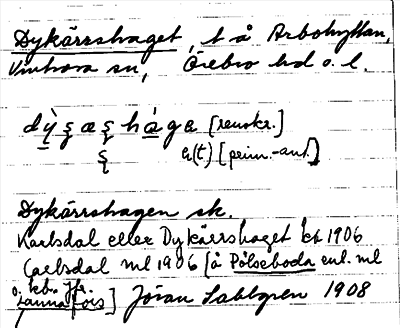 Dykärrshaget, t å Arbohyttan,
Vintrosa sn, Örebro hd o. l.
dỳʂæʂhagɐ [renskr.]
ʂ ɐ(t) [prim.-ant.]
Dykärrshagen sk.
Karlsdal eller Dykärrshaget kb 1906
Carlsdal ml 1906 [å Pålseboda enl. ml
o. kb. jfr.
Lannafors] Jöran Sahlgren 1908